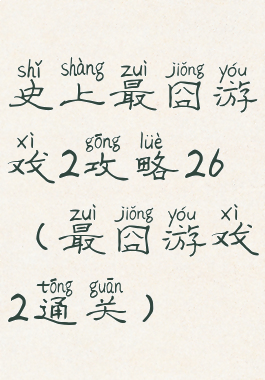 shǐ shàng zuì jiǒng yóu
史上最囧游
xì gōng lüè
戏2攻略26
zuì jiǒng yóu xì
（最囧游戏
tōng guān
2通关）